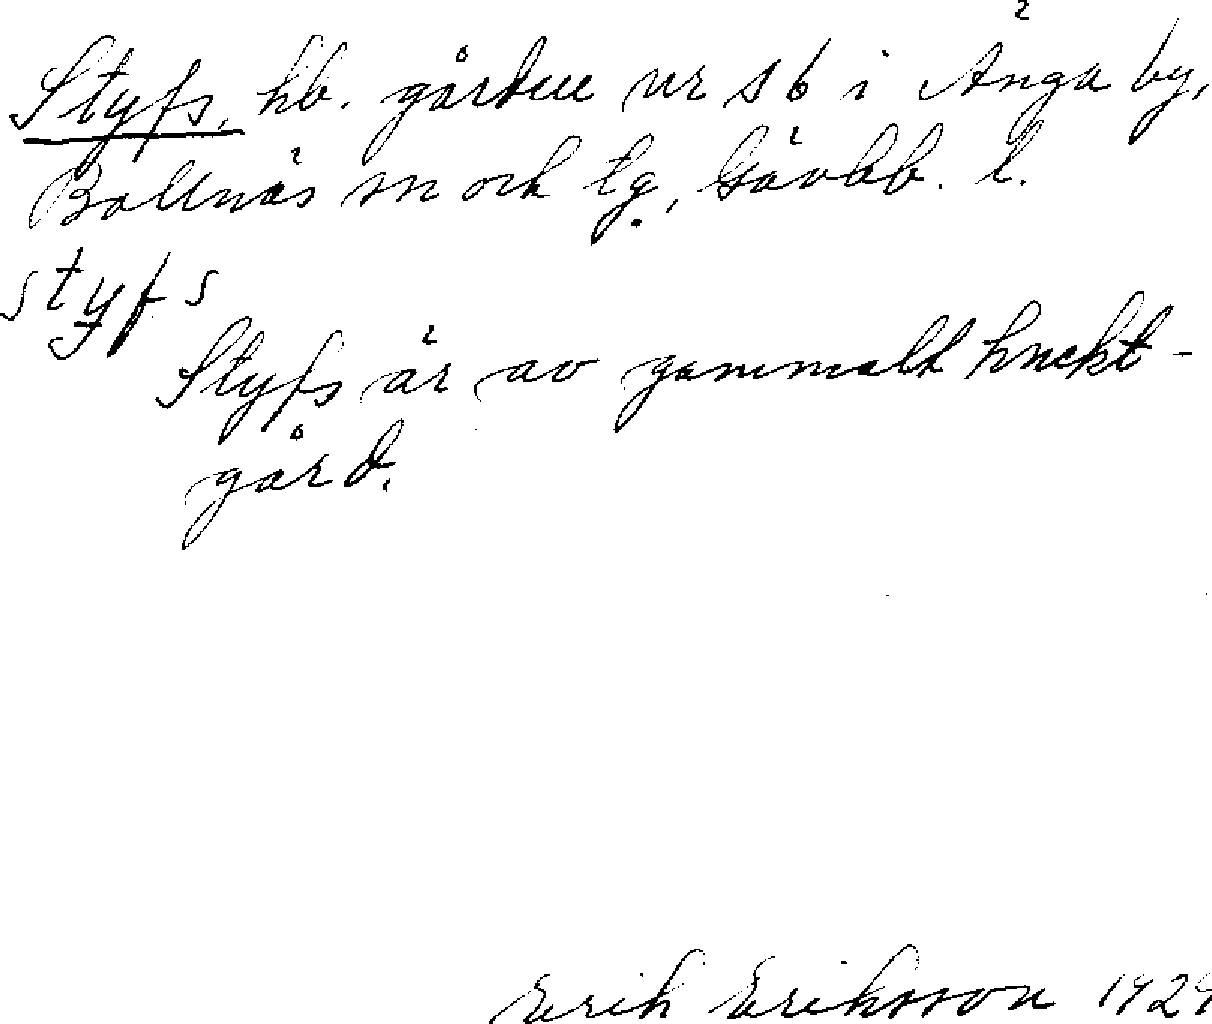 Styfs, hb. gården nr 16 i Änga by,
Bollnäs sn och tg, Gävlb. l.
styfs
Styfs är av gammalt knekt-
gård.
Erik Eriksson 1929